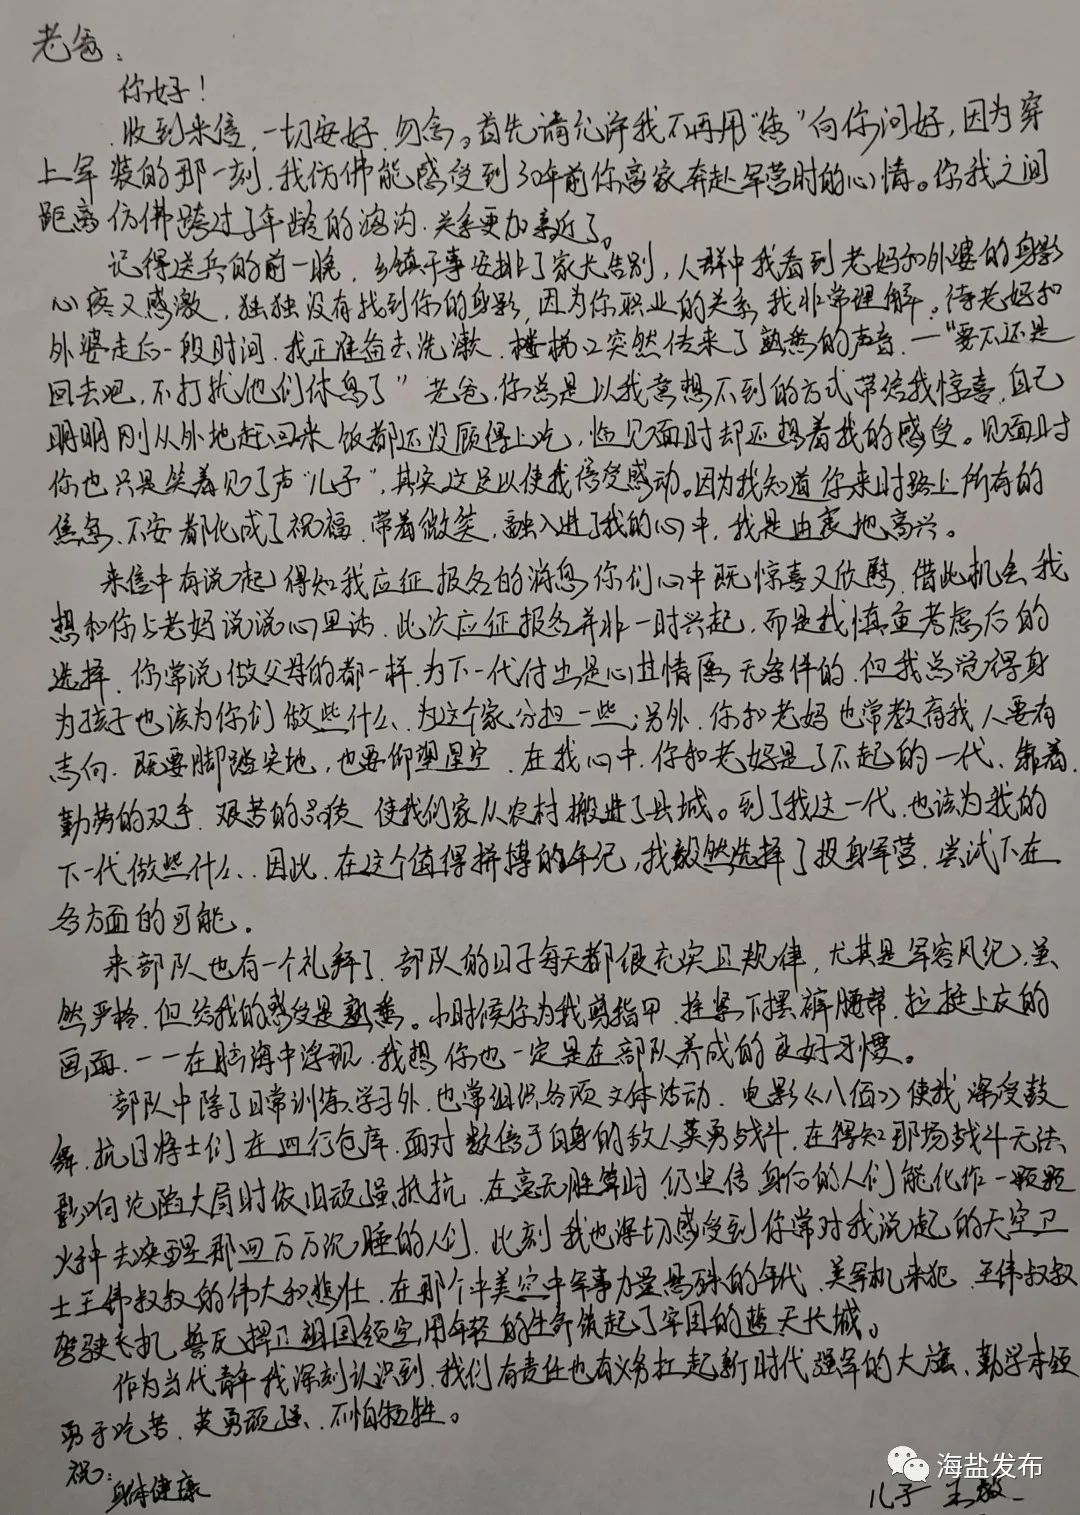 老爸：
你好！
收到来信，一切安好，勿念。首先请允许我不再用“您”向你问好，因为穿
上军装的那一刻，我仿佛能感受到30年前你离家奔赴军营时的心情。你我之间
距离仿佛跨过了年龄的鸿沟，关系更加亲近了。
记得送兵的前一晚，乡镇干事安排了家人告别，人群中我看到老妈和外婆的身影
心疼又感激，独独没有找到你的身影，因为你职业的关系，我非常理解。待老妈和
外婆走后一段时间，我正准备去洗漱，楼梯口突然传来了熟悉的声音，一“要不还是
回去吧，不打扰他们休息了”老爸，你总是以我意想不到的方式带给我惊喜，自己
明明刚从外地赶回来饭都还没顾得上吃，临见面时却还想着我的感受。见面时
你也只是笑着见了声“儿子”，其实这足以使我倍受感动。因为我知道你来时路上所有的
焦急、不安都化成了祝福，带着微笑，融入进了我的心中，我是由衷地高兴。
来信中有说起得知我应征报名的消息你们心中既惊喜又欣慰，借此机会我
想和你与老妈说说心里话，此次应征报名并非一时兴起，而是我慎重考虑后的
选择，你常说做父母的都一样，为下一代付出是心甘情愿无条件的，但我总觉得身
为孩子也该为你们做些什么、为这个家分担一些；另外，你和老妈也常教育我人要有
志向，既要脚踏实地，也要仰望星空，在我心中，你和老妈是了不起的一代、靠着
勤劳的双手，艰苦的品质 使我们家从农村搬进了县城。到了我这一代，也该为我的
下一代做些什么、因此，在这个值得拼搏的年纪，我毅然选择了投身军营，尝试下在
各方面的可能。
来部队也有一个礼拜了，部队的日子每天都很充实且规律，尤其是军容风纪，虽
然严格，但给我的感受是熟悉。小时候你为我剪指甲，拴紧下摆裤腰带，拉挺上衣的
画面，一一在脑海中浮现，我想你也一定是在部队养成的良好习惯。
部队中除了日常训练、学习外，也常组织各项文体活动，电影《八佰》使我深受鼓
舞，抗日将士们在四行仓库，面对数倍于自身的敌人英勇战斗，在得知那场战斗无法
影响沦陷大局时依旧顽强抵抗，在毫无胜算时，仍坚信身后的人们能化作一颗颗
火种去唤醒那四万万沉睡的人们，此刻，我也深切感受到你常对我说起的天空卫
士王伟叔叔的伟大和悲壮，在那个中美空中军事力量悬殊的年代，美军机来犯，王伟叔叔
驾驶飞机，誓死捍卫祖国领空，用年轻的生命筑起了牢固的蓝天长城。
作为当代青年我深刻认识到，我们有责任也有义务扛起新时代强军的大旗、勤学本领
勇于吃苦、英勇顽强、不怕牺牲。
祝：
身体健康
儿子 王
海盐发布